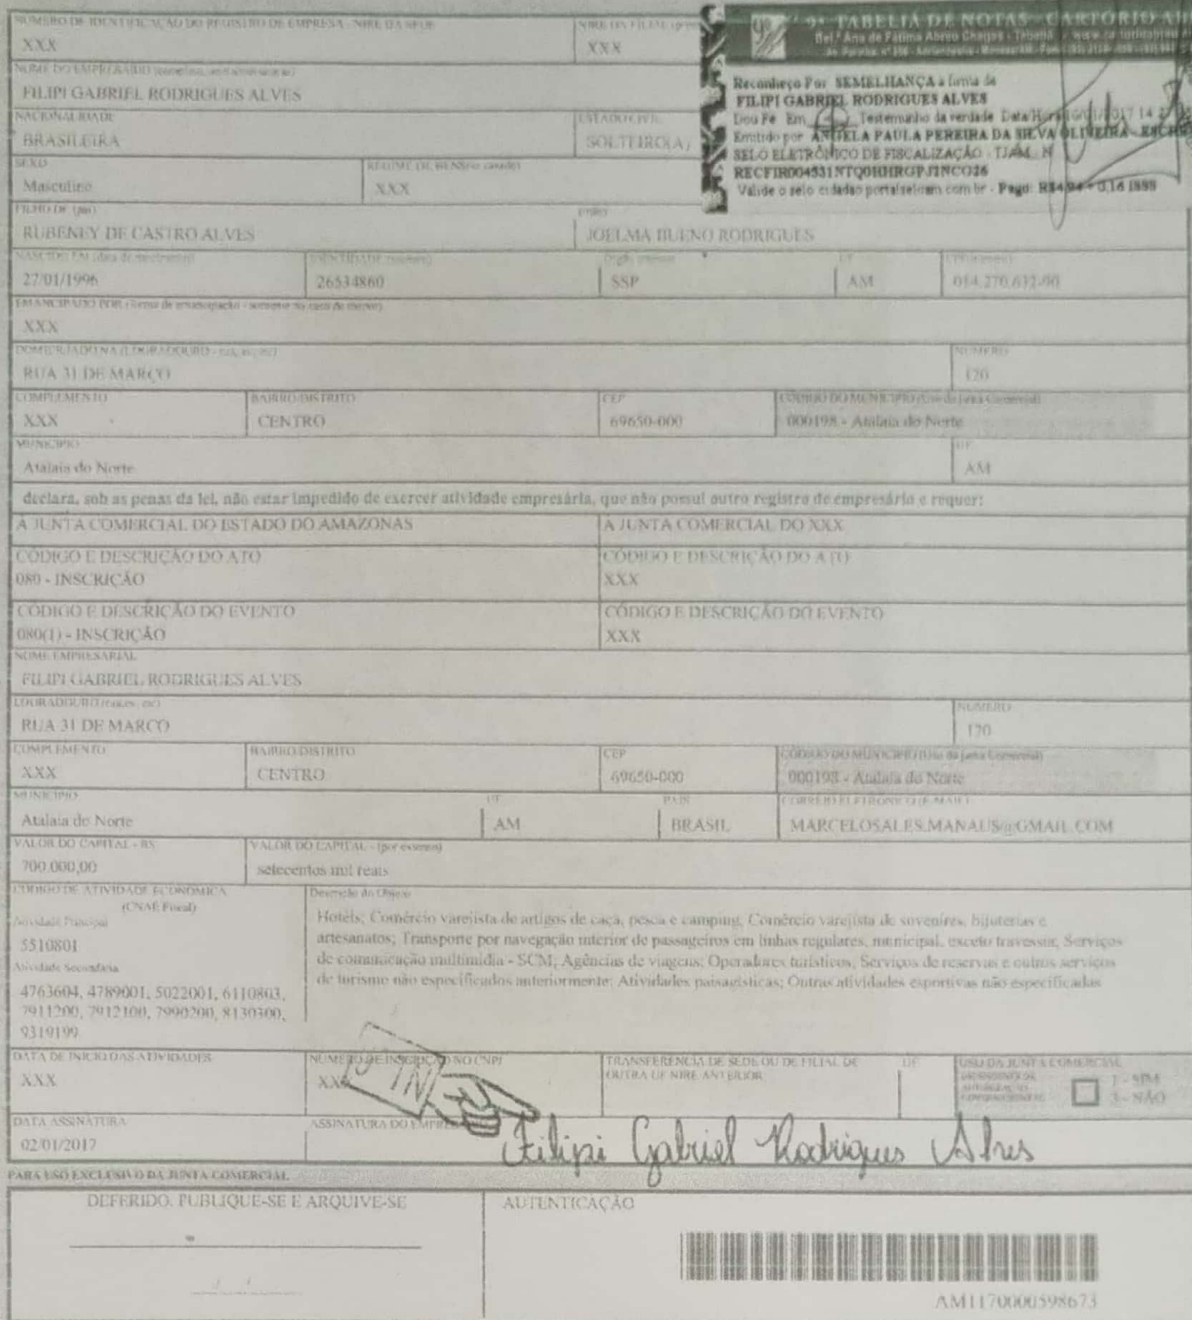 NUMERO DE IDENTIFICAÇÃO DO REGISTRO DE EMPRESA - NIRE DA SEDE
XXX
NIRE DA FILIAL
XXX
9º TABELIÃ DE NOTAS - CARTÓRIO
Bel.ª Ana de Fátima Abreu Chagas - Tabeliã
Reconheço Por SEMELHANÇA a firma de
FILIPI GABRIEL RODRIGUES ALVES
Dou Fé Em Testemunho da verdade Data/Hora
Emitido por ANGELA PAULA PEREIRA DA SILVA OLIVEIRA
SELO ELETRÔNICO DE FISCALIZAÇÃO - TJAM N
Valide o selo cidadao.portalseloam.com.br - Pago:
NOME DO EMPRESÁRIO
FILIPI GABRIEL RODRIGUES ALVES
NACIONALIDADE
BRASILEIRA
ESTADO CIVIL
SOLTEIRO(A)
SEXO
Masculino
REGIME DE BENS (se casado)
XXX
FILHO DE (pai)
RUBENEY DE CASTRO ALVES
(mãe)
JOELMA BUENO RODRIGUES
NASCIDO EM (data de nascimento)
27/01/1996
IDENTIDADE (número)
26534860
Órgão emissor
SSP
UF
AM
EMANCIPADO POR (forma de emancipação - somente no caso de menor)
XXX
DOMICILIADO NA (LOGRADOURO - rua, av, etc)
RUA 31 DE MARÇO
NUMERO
120
COMPLEMENTO
XXX
BAIRRO/DISTRITO
CENTRO
CEP
69650-000
CÓDIGO DO MUNICIPIO (Uso da Junta Comercial)
000198 - Atalaia do Norte
MUNICIPIO
Atalaia do Norte
UF
AM
declara, sob as penas da lei, não estar impedido de exercer atividade empresária, que não possui outro registro de empresário e requer:
A JUNTA COMERCIAL DO ESTADO DO AMAZONAS
A JUNTA COMERCIAL DO XXX
CÓDIGO E DESCRIÇÃO DO ATO
080 - INSCRIÇÃO
CÓDIGO E DESCRIÇÃO DO ATO
XXX
CÓDIGO E DESCRIÇÃO DO EVENTO
080(1) - INSCRIÇÃO
CÓDIGO E DESCRIÇÃO DO EVENTO
XXX
NOME EMPRESARIAL
FILIPI GABRIEL RODRIGUES ALVES
LOGRADOURO (rua, av, etc)
RUA 31 DE MARÇO
NUMERO
COMPLEMENTO
XXX
BAIRRO/DISTRITO
CENTRO
CEP
69650-000
CÓDIGO DO MUNICIPIO (Uso da Junta Comercial)
000198 - Atalaia do Norte
MUNICIPIO
Atalaia do Norte
UF
AM
PAIS
BRASIL
CORREIO ELETRONICO (E-MAIL)
MARCELOSALES.MANAUS@GMAIL.COM
VALOR DO CAPITAL - R$
700.000,00
VALOR DO CAPITAL - (por extenso)
setecentos mil reais
CODIGO DE ATIVIDADE ECONOMICA
(CNAE Fiscal)
Atividade Principal
5510801
Atividade Secundária
4763604, 4789001, 5022001, 6110803,
7911200, 7912100, 7990200, 8130300,
9319199
Descrição do Objeto
Hotéis; Comércio varejista de artigos de caça, pesca e camping; Comércio varejista de suvenires, bijuterias e
artesanatos; Transporte por navegação interior de passageiros em linhas regulares, municipal, exceto travessia; Serviços
de comunicação multimídia - SCM; Agências de viagens; Operadores turísticos; Serviços de reservas e outros serviços
de turismo não especificados anteriormente; Atividades paisagísticas; Outras atividades esportivas não especificadas
DATA DE INICIO DAS ATIVIDADES
XXX
NUMERO DE INSCRIÇÃO NO CNPJ
TRANSFERENCIA DE SEDE OU DE FILIAL DE
OUTRA UF NIRE ANTERIOR
UF
USO DA JUNTA COMERCIAL
1 - SIM
3 - NÃO
DATA ASSINATURA
02/01/2017
ASSINATURA DO
Filipi Gabriel Rodrigues Alves
PARA USO EXCLUSIVO DA JUNTA COMERCIAL
DEFERIDO. PUBLIQUE-SE E ARQUIVE-SE
AUTENTICAÇÃO
AM1170000598673